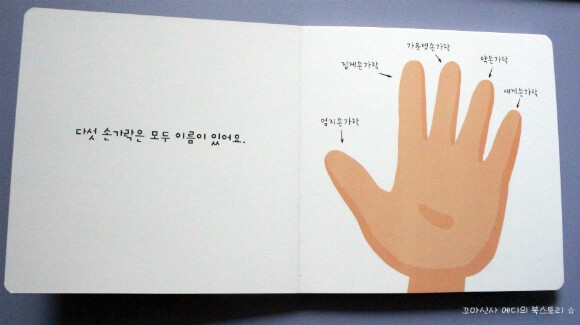 다섯 손가락은 모두 이름이 있어요.
가운뎃손가락
약손가락
집게손가락
새끼손가락
엄지손가락
꼬마신사 에디의 북스토리 ☆